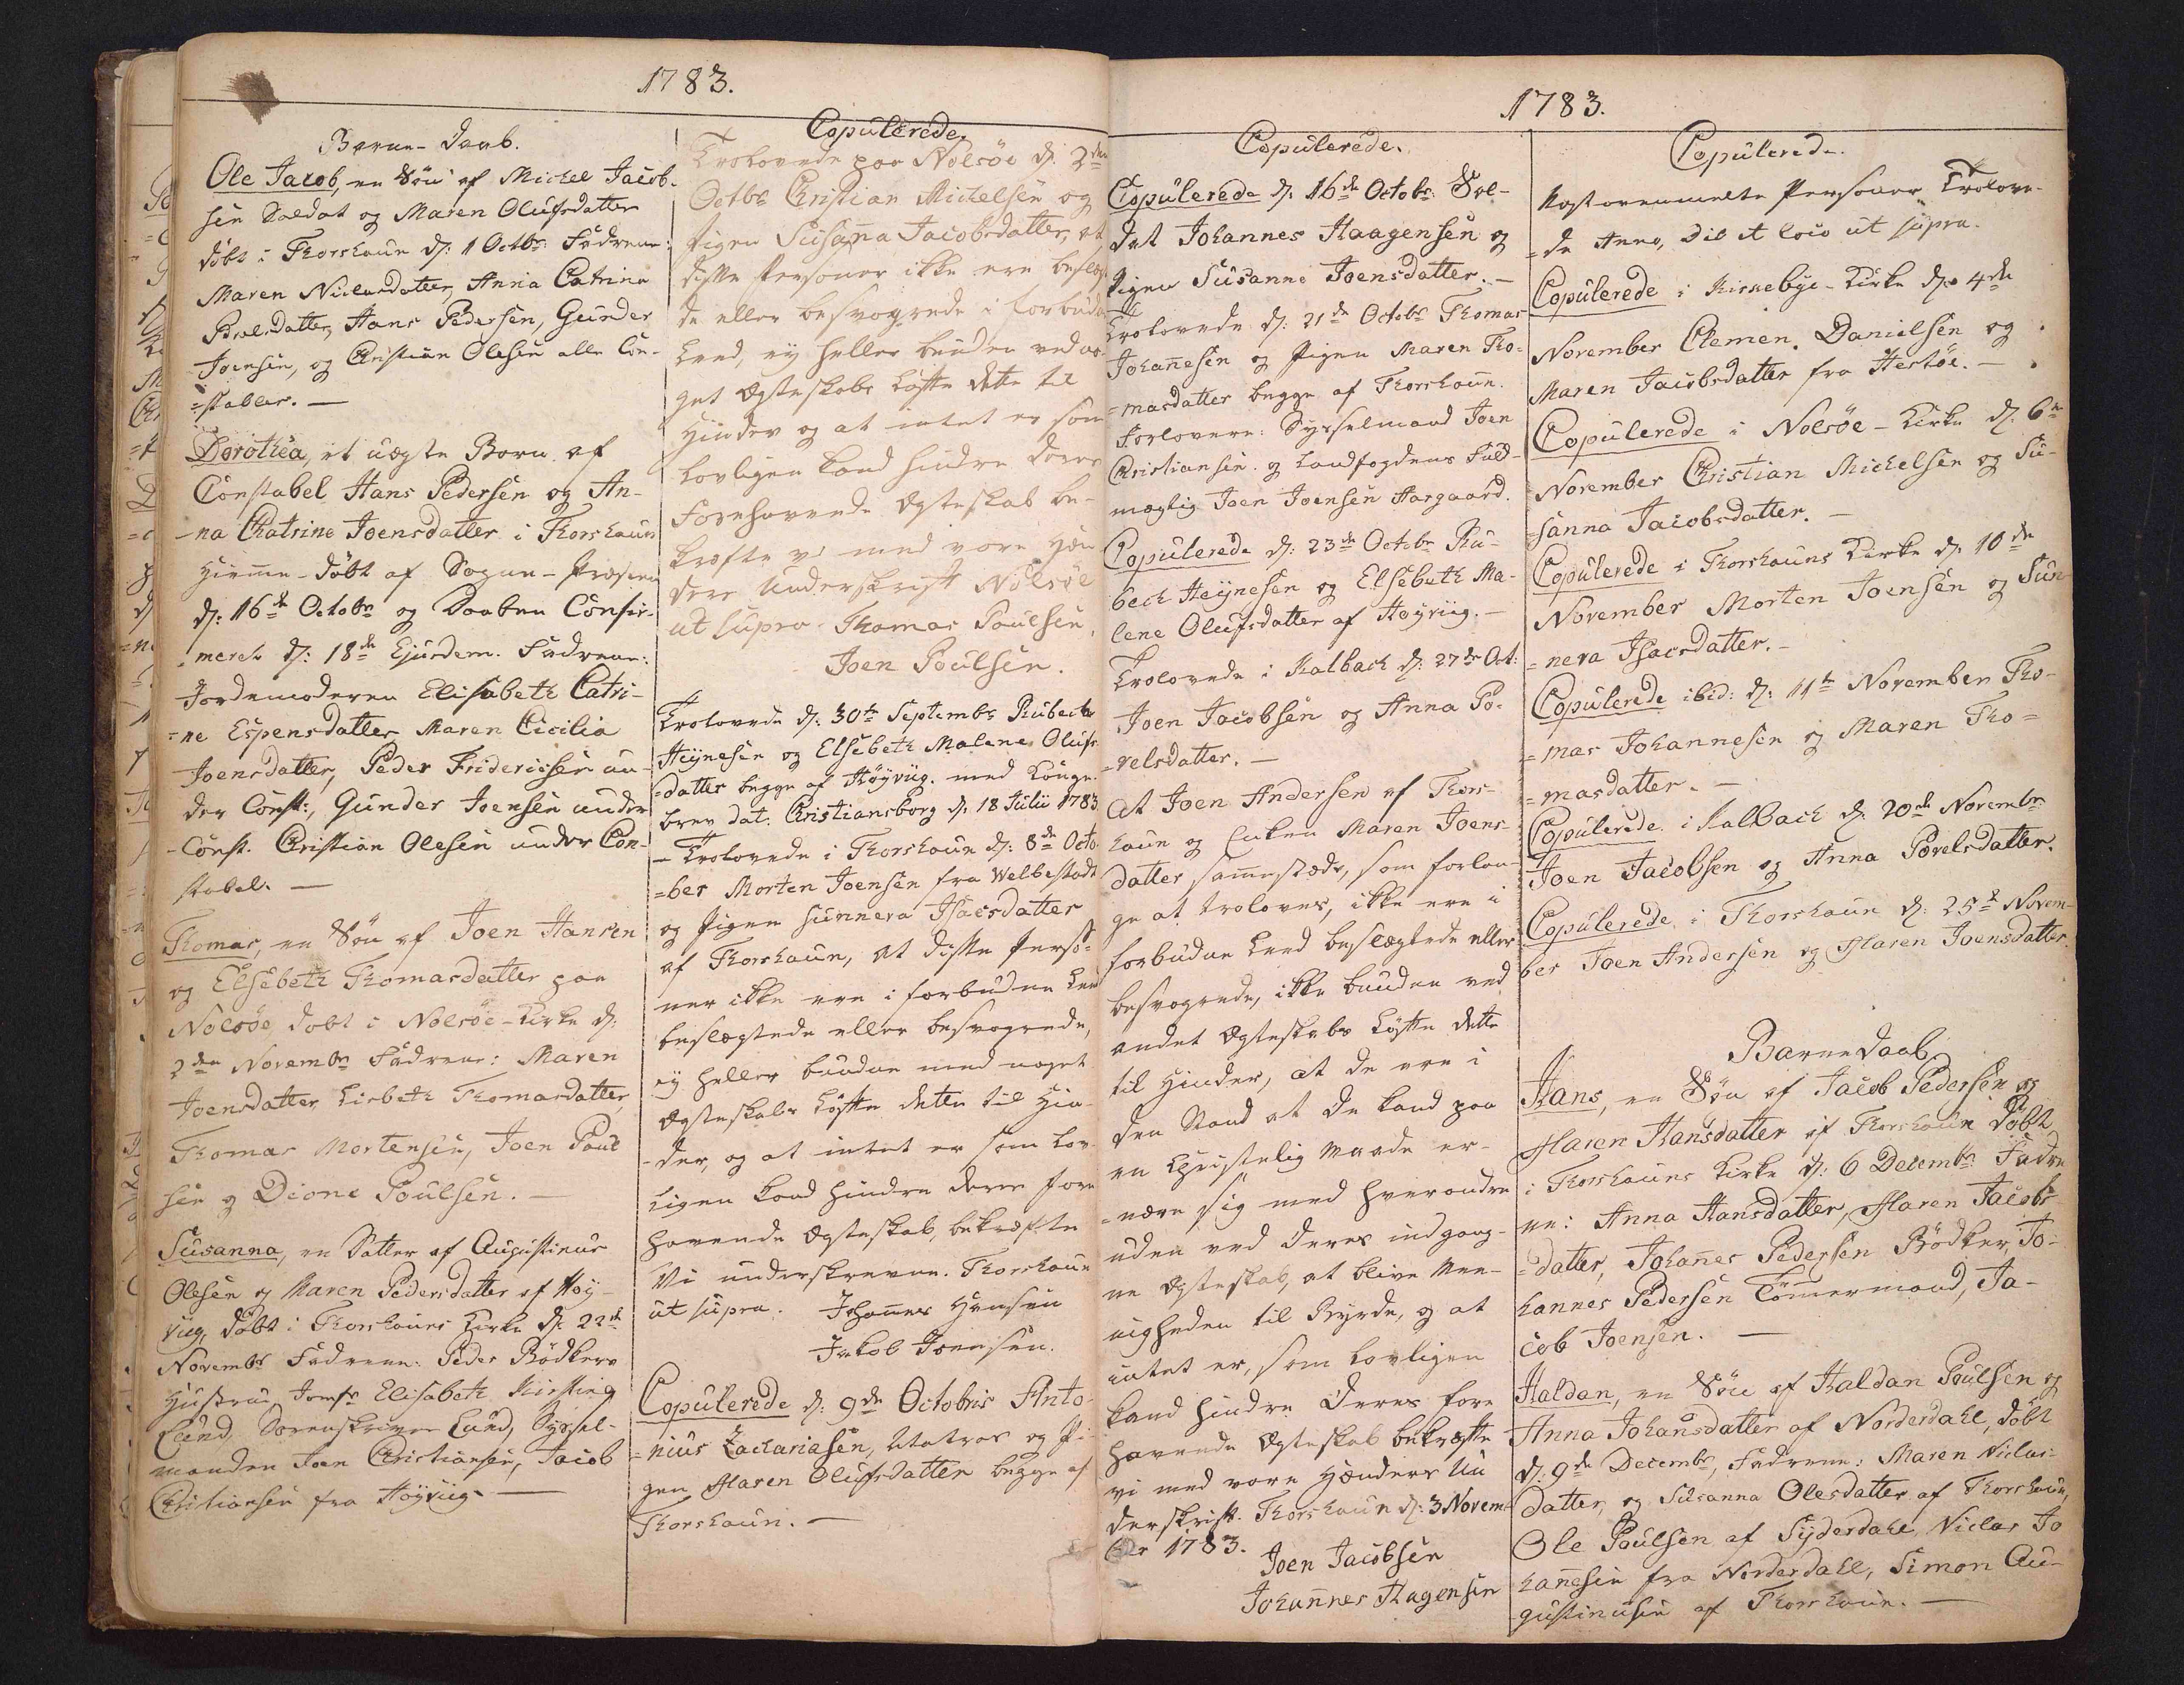 1783.
Barne-Daab.
Ole Jacob, en Søn af Michel Jacob-
sen Soldat og Maren Olufsdatter
døbt i Thorshaun d: 1 Octbr Fadrene:
Maren Niclasdatter, Anna Catrina
Poulsdatter, Hans Pedersen, Gunder
Joensen, og Christian Olesen alle Con-
=stabler. —
Dorothea, et uægte Barn af
Constabel Hans Pedersen og An-
-na Chatrine Joensdatter i Thorshaun
Hiemme-døbt af Sogne-Præsten
d: 16de Octobr og Daaben Confir-
-meret d: 18de Ejusdem. Fadrene:
Jordemoderen Elisabeth Catri-
=ne Espensdatter Maren Cicilia
Joensdatter, Peder Fridericksen un-
der Const:, Gunder Joensen under
-Const. Christian Olesen under Con-
stabel. —
Thomas, en Søn af Joen Hansen
og Elsebeth Thomasdatter paa
Nolsøe, døbt i Nolsøe-Kirke d:
2den Novembr Fadrene: Maren
Joensdatter, Lisbeth Thomasdatter,
Thomas Mortensen, Joen Poul
sen og Dione Poulsen. —
Susanna, en Datter af Augustinus
Olesen og Maren Pedersdatter af Høy-
viig, døbt i Thorshauns Kirke d: 23de
Novembr Fadrene: Peder Bødkers
Hustrue, Jomfr Elisabeth Kirstine
Lund, Sorenskriver Lund, Syssel-
manden Joen Christiansen, Jacob
Christiansen fra Høyviig. —
Copulerede.
Trolovede paa Nolsøe d. 2den
Octbr Christian Michelsen og
Pigen Susanna Jacobsdatter, at
disse Personer ikke ere beslæg
de eller besvogrede i forbudne
Leed, eij heller bunden ved no-
get Ægteskabs Løfte dette til
Hinder og at intet er som
lovligen kand hindre deres
Forehavende Ægteskab be-
kræfte vi med vore Hæn
ders Underskrift Nolsøe
ut supra. Thomas Poulsen,
Joen Poulsen.
Trolovede d: 30te Septembr Rubech
Heynesen og Elsebeth Malene Olufs
=datter begge af Høyviig. med Konge-
brev dat. Christiansborg d: 18 Julii 1783
- Trolovede i Thorshaun d: 8de Octo
=ber Morten Joensen fra Welbestadt
og Pigen Sunneva Isacsdatter
af Thorshaun, at disse Perso-
ner ikke ere i forbudne Leed
beslægtede eller besvogrede,
eij heller bundne med noget
Ægteskabs Løfte dette til Hin-
-der, og at intet er som lov
ligen kand hindre deres fore
havende Ægteskab, bekræfte
Vi underskrevne. Thorshaun
ut supra. Johannes Hansen
Jakob Joensen.
Copulerede d: 9de Octobris Anto-
=nius Zachariasen, Matros og Pi-
gen Maren Olufsdatter begge af
Thorshaun. —
1783.
Copulerede.
Copulerede d: 16de Octobr: Sol-
dat Johannes Haagensen og
Pigen Susanne Joensdatter. —
Trolovede d: 21de Octobr Thomas
Johañesen og Pigen Maren Tho-
=masdatter begge af Thorshaun.
Forlovere: Sysselmand Joen
Christiansen og Landfogdens Fuld-
mægtig Joen Joensen Aargaard.
Copulerede d: 23de Octobr Ru-
bech Heynesen og Elsebeth Ma-
lene Olufsdatter af Høyviig. —
Trolovede i Kalbach d: 27de Oct:
Joen Jacobsen og Anna Po-
-velsdatter. —
At Joen Andersen af Thors-
haun og Enken Maren Joens-
datter sammestæds, som forlan-
ge at troloves, ikke ere i
forbudne Leed beslægtede eller
besvogrede, ikke bunden ved
andet Ægteskabs Løfte dette
til Hinder, at de ere i
den Stand at de kand paa
en Christelig Maade er-
-nære sig med hverandre
uden ved deres indgang-
ne Ægteskab, at blive Men-
nigheden til Byrde, og at
intet er, som lovligen
kand hindre Deres fore
havende Ægteskab bekræfte
vi med vore Hænders Un
derskrift. Thorshaun d: 3 Novem-
ber 1783.
Joen Jacobsen
Johannes Hagensen
Copulerede.
Nest ovenmelte Personer Trolove-
=de Anno, Die et loco ut supra.
Copulerede i Kirkebye-Kirke d: 4de
November Clemen. Danielsen og
Maren Jacobsdatter fra Hestøe. —
Copulerede i Nolsøe-Kirke d. 6te
November Christian Michelsen og Su-
sanna Jacobsdatter. —
Copulerede i Thorshauns Kirke d. 10de
November Morten Joensen og Sun-
=neva Isacsdatter. —
Copulerede ibid: d: 11te November Tho-
=mas Johannesen og Maren Tho=
=masdatter. —
Copulerede i Kalbach d. 20de Novembr
Joen Jacobsen og Anna Povelsdatter.
Copulerede i Thorshaun d: 25de Novem-
ber Joen Andersen og Maren Joensdatter.
BarneDaab
Hans, en Søn af Jacob Pedersen og
Maren Hansdatter af Thorshaun døbt
i Thorshauns Kirke d: 6 Decembr: Fadre
ne: Anna Hansdatter, Maren Jacobs
=datter, Johañes Pedersen Bødker, Jo-
hannes Pedersen Tømmermand, Ja-
cob Joensen. —
Haldan, en Søn af Haldan Poulsen og
Anna Johansdatter af Norderdahl, døbt
d: 9de Decembr, Fadrene: Maren Niclas-
datter, og Susanna Olesdatter af Thorshaun,
Ole Poulsen af Syderdahl, Niclas Jo
hañesen fra Norderdahl, Simon Au-
gustinusen af Thorshaun. —